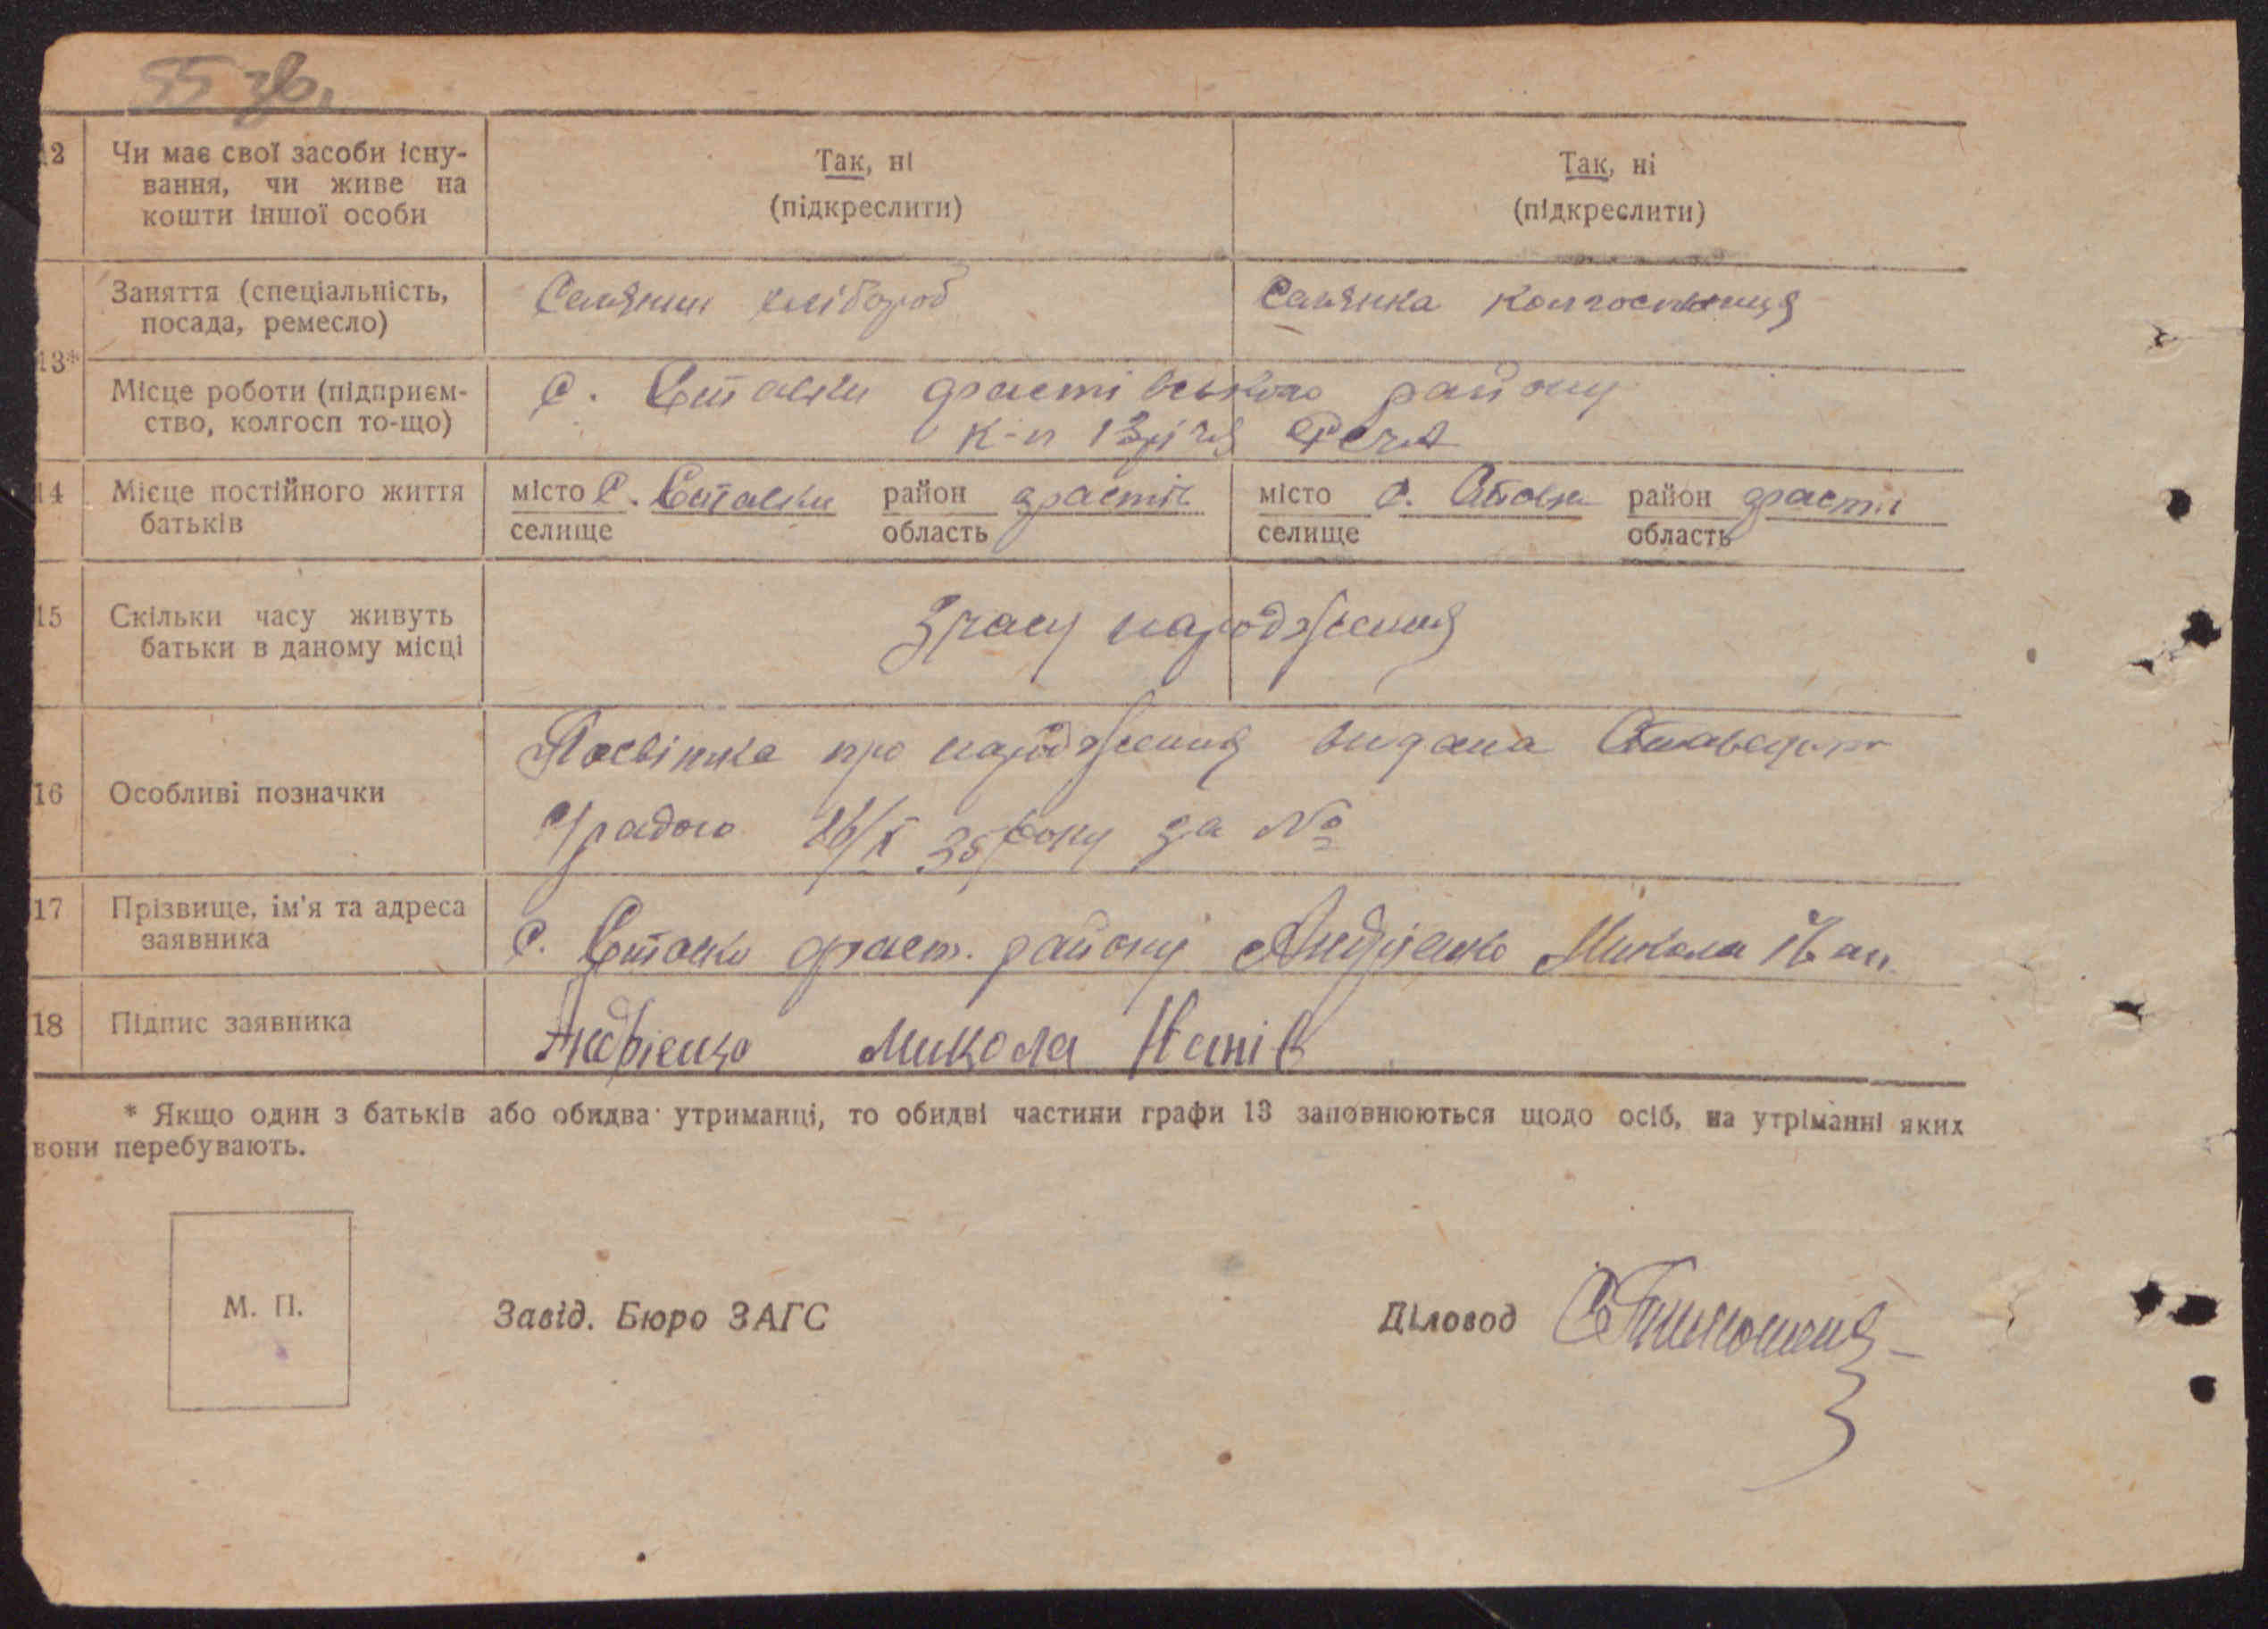 55 зв.
12 Чи має свої засоби існу-
вання, чи живе на
кошти іншої особи
Так, ні
(підкреслити)
Так, ні
(підкреслити)
13*
Заняття (спеціальність,
посада, ремесло)
Селянин хлібороб
Селянка колгоспниця
Місце роботи (підприєм-
ство, колгосп то-що)
с. Ставки фастівського району
к-п 13річчя
14 Місце постійного життя
батьків
місто с. Ставки район фастів
селище область
місто с. Ставки район фастів
селище область
15 Скільки часу живуть
батьки в даному місці
Зчасу народження
16 Особливі позначки
Посвітка про народження видана
радою 26/X 35 року за №
17 Прізвище, ім'я та адреса
заявника
с. Ставки фаст. району Андрієнко Микола Іван.
18 Підпис заявника
Андрієнко Микола
* Якщо один з батьків або обидва утриманці, то обидві частини графи 13 заповнюються щодо осіб, на утріманні яких
вони перебувають.
М. П.
Завід. Бюро ЗАГС
Діловод